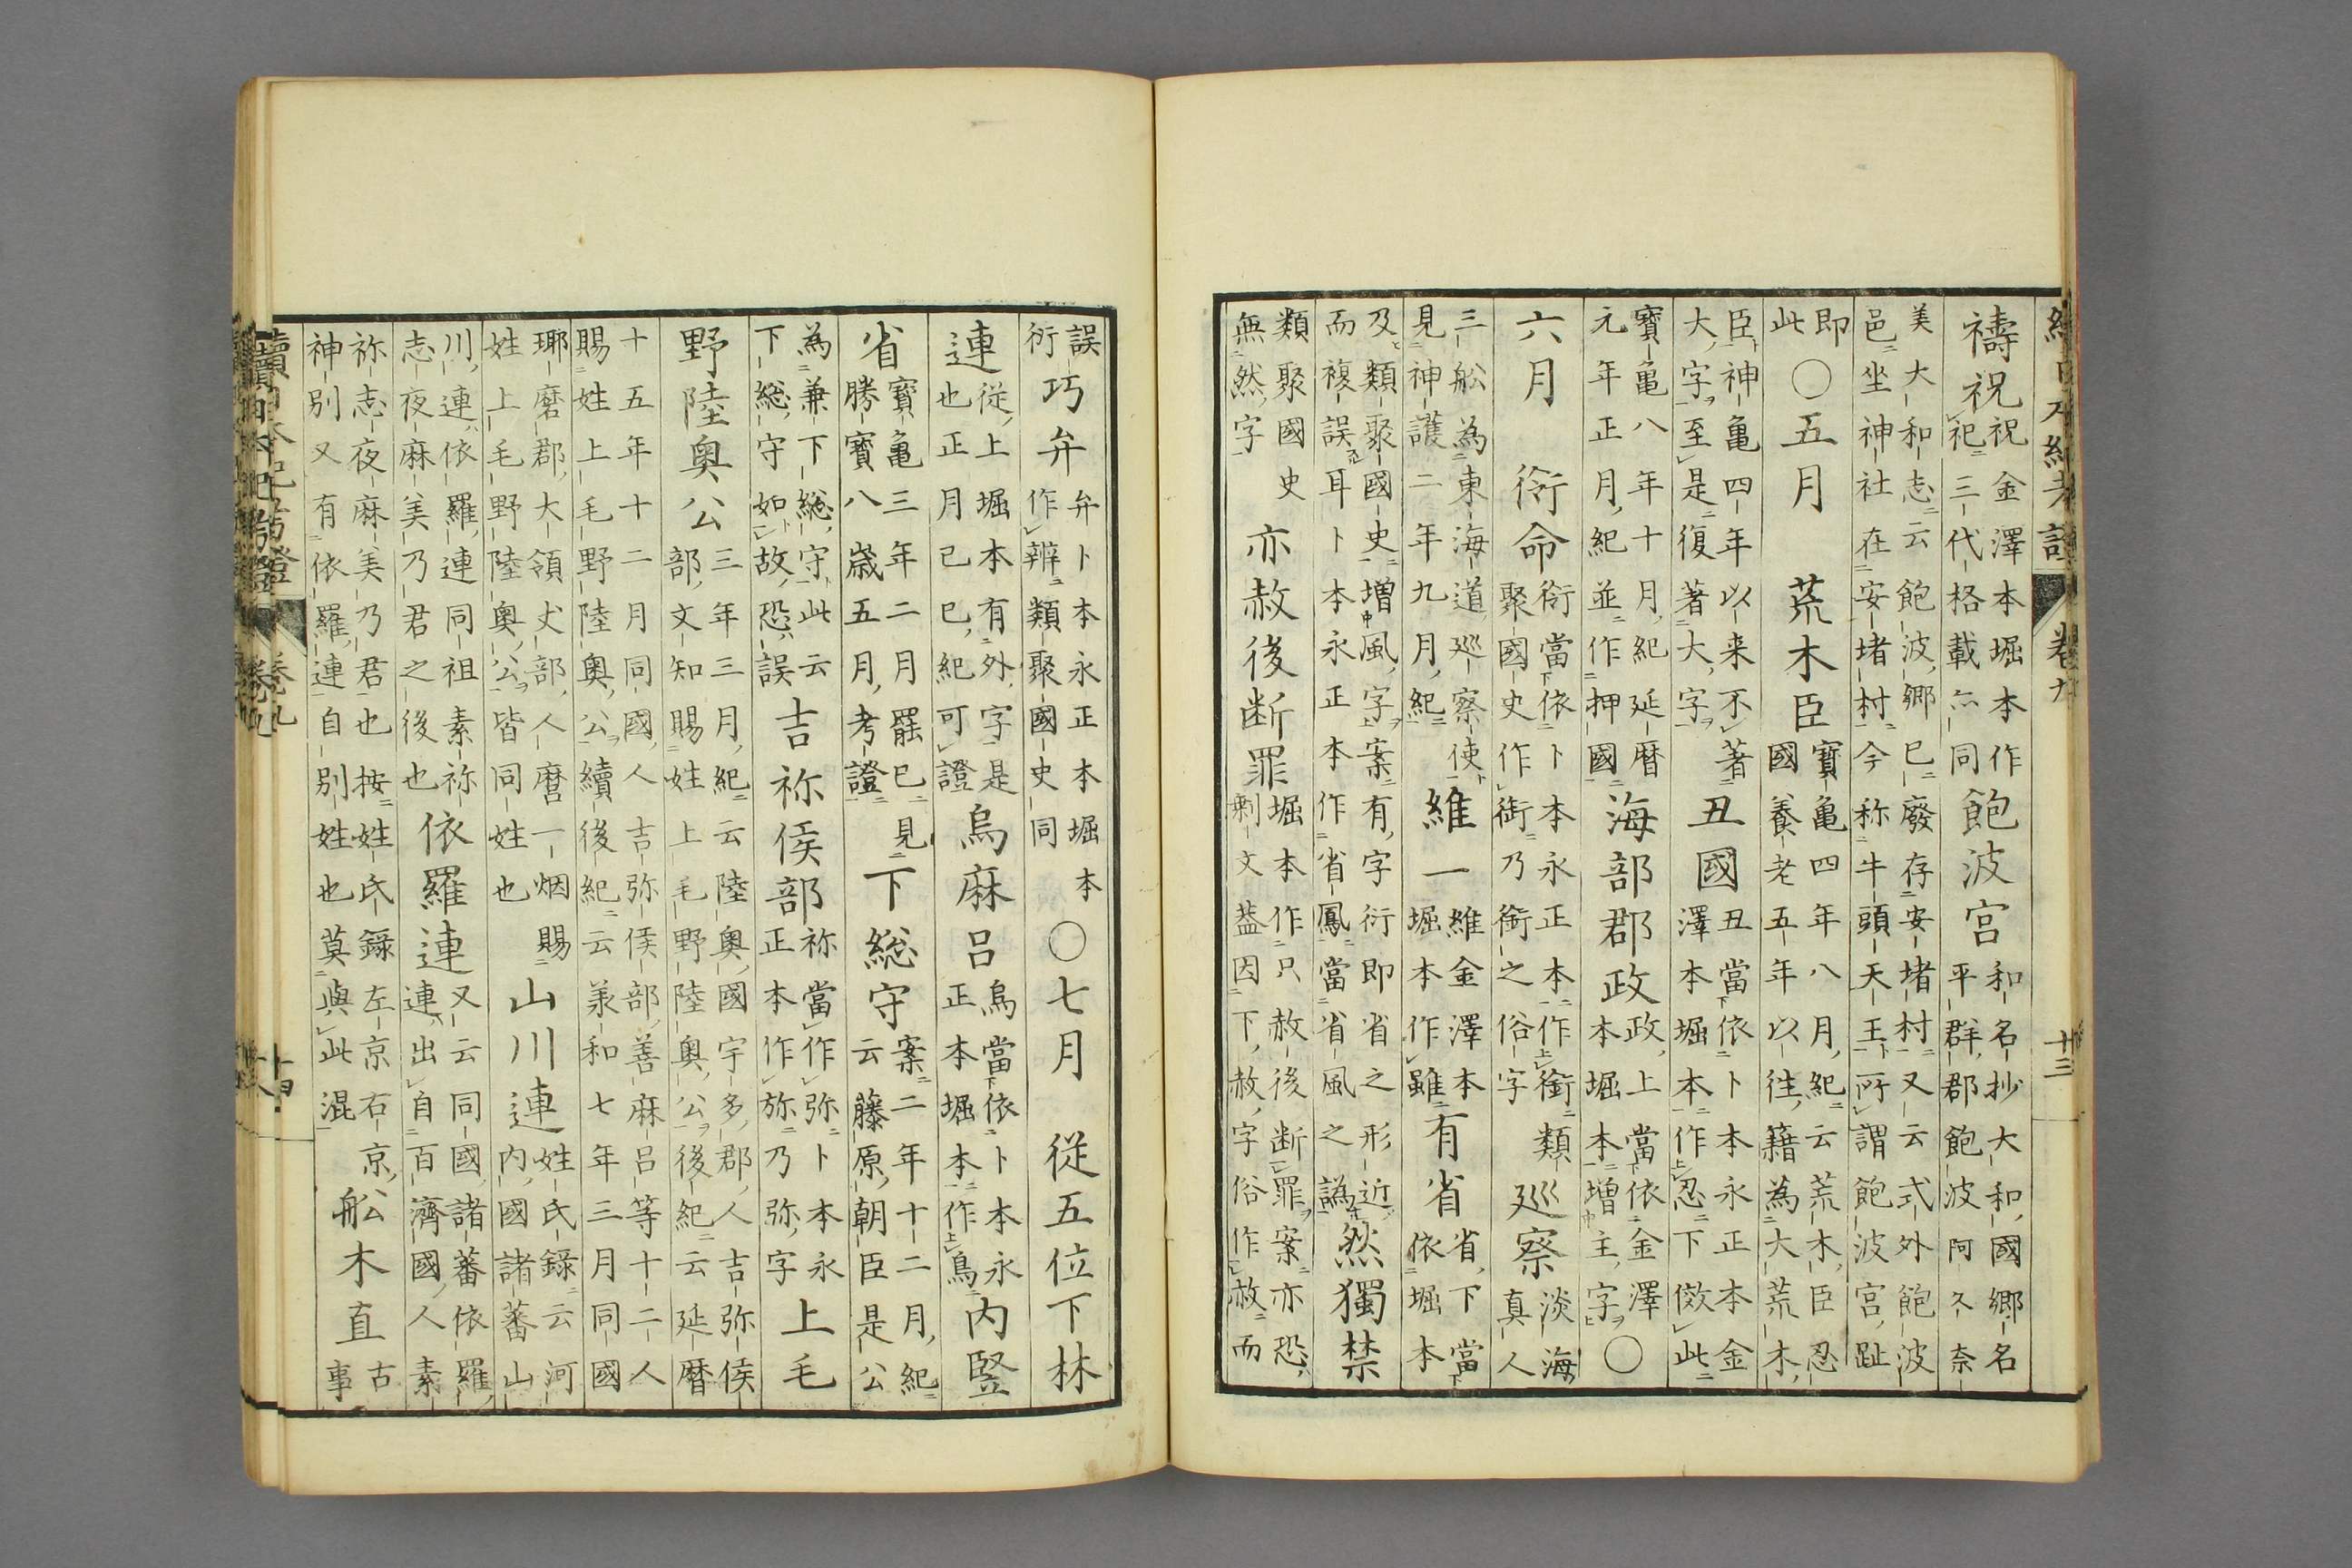 續日本紀考證 卷九 十三
禱祝祝金澤本堀本作
祀三代格載亦同飽波宮和名抄大和國郷名
平群郡飽波阿久奈
美大和志云飽波郷已廢存安堵村又云式外飽波
邑坐神社在安堵村今称牛頭天王所謂飽波宮趾
即
此〇五月 荒木臣寶亀四年八月紀云荒木臣忍
國養老五年以往籍為大荒木
臣神亀四年以来不著
大字至是復著大字丑國丑當依卜本永正本金
澤本堀本作忍下傚此
寶亀八年十月紀延暦
元年正月紀並作押國海部郡政政上當依金澤
本堀本増主字〇
六月 衘命衘當依卜本永正本作銜類
聚國史作衘乃銜之俗字巡察淡海
真人
三舩為東海道巡察使
見神護二年九月紀維一維金澤本
堀本作雖有省省下當
依堀本
及類聚國史増風字案有字衍即省之形近
而複誤耳卜本永正本作省鳳當省風之譌然獨禁
類聚國史
無然字亦赦後断罪堀本作只赦後断罪案亦恐
剰文葢因下赦字俗作赦而
誤
衍巧弁弁卜本永正本堀本
作辨類聚國史同〇七月 従五位下林
連従上堀本有外字是
也正月己巳紀可證烏麻呂烏當依卜本永
正本堀本作鳥内竪
省寶亀三年二月罷已見
勝寶八歳五月考證下総守案二年十二月紀
云藤原朝臣是公
為兼下総守此云
下総守如故恐誤吉祢侯部祢當作弥卜本永
正本作旀乃弥字上毛
野陸奥公三年三月紀云陸奥國宇多郡人吉弥侯
部文知賜姓上毛野陸奥公後紀云延暦
十五年十二月同國人吉弥侯部善麻呂等十二人
賜姓上毛野陸奥公續後紀云羕和七年三月同國
瑘磨郡大領丈部人麿一烟賜
姓上毛野陸奥公皆同姓也山川連姓氏録云河
内國諸蕃山
川連依羅連同祖素祢
志夜麻美乃君之後也依羅連又云同國諸蕃依羅
連出自百濟國人素
祢志夜麻美乃君也按姓氏録左京右京
神別又有依羅連自別姓也莫與此混舩木直古
事
續日本紀考證 卷九 十四